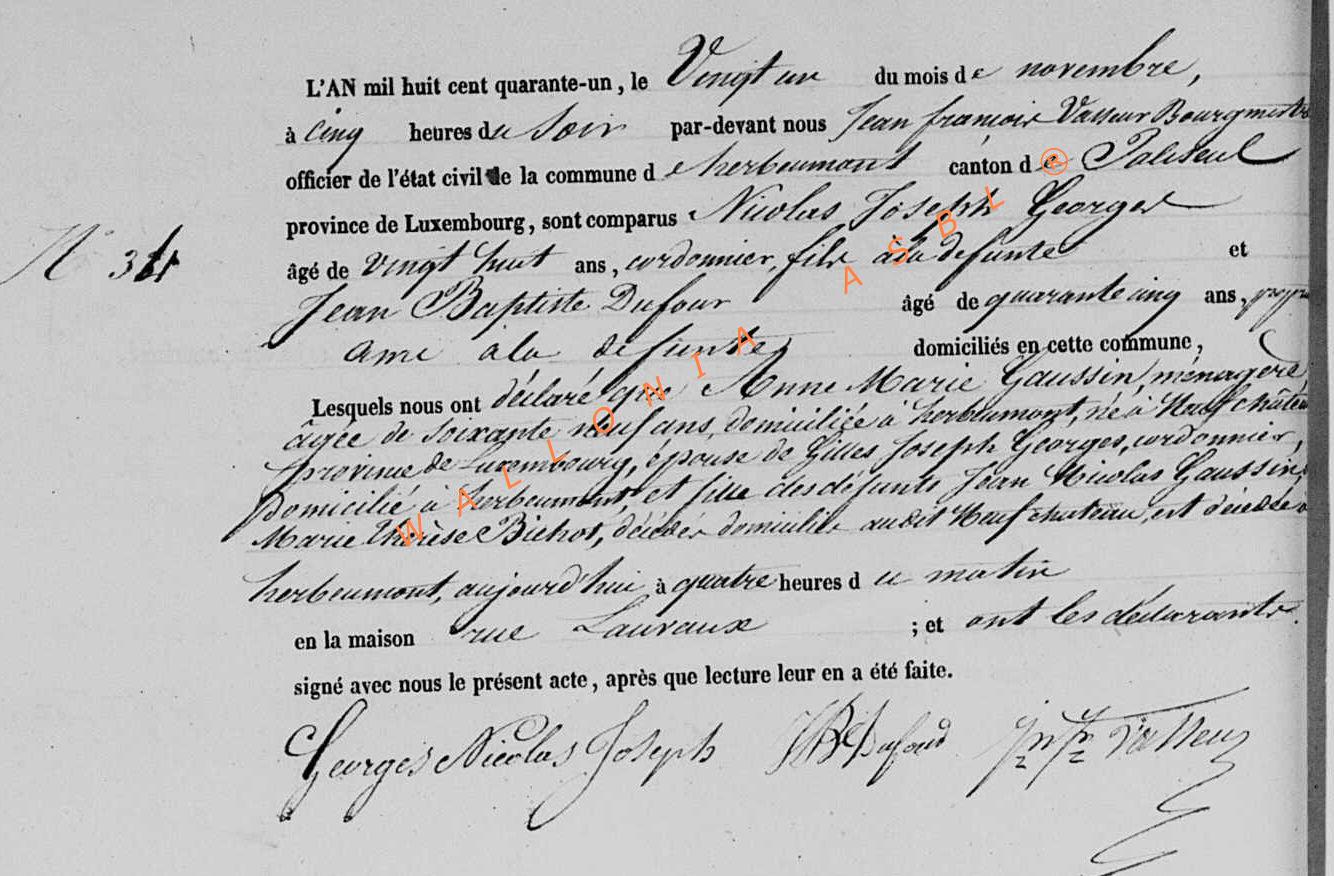 L'AN mil huit cent quarante-un, le Vingt un du mois de novembre,
à cinq heures du Soir par-devant nous Jean francois Vasseur Bourgmestre
officier de l'état civil de la commune de herbeumont canton de Paliseul
province de Luxembourg, sont comparus Nicolas Joseph Georges
N° 34
âgé de vingt huit ans, cordonnier, fils à la defunte et
Jean Baptiste Dufour âgé de quarante cinq ans,
ami à la defunte, domiciliés en cette commune,
Lesquels nous ont déclaré que Anne Marie Gaussin, ménagere
âgée de soixante neuf ans, domiciliée à herbeumont, née à Neufchâteau
province de Luxembourg, épouse de Gilles Joseph Georges, cordonnier,
domicilié à herbeumont, et fille des défunts Jean Nicolas Gaussin,
Marie Thérèse Bichot, décédés domiciliés audit Neufchateau, est décédée à
herbeumont, aujourd'hui à quatre heures du matin
en la maison rue Lauvaux ; et ont les déclarants
signé avec nous le présent acte, après que lecture leur en a été faite.
Georges Nicolas Joseph JBte Dufour Vasseur
WALLONIA ASBL ®